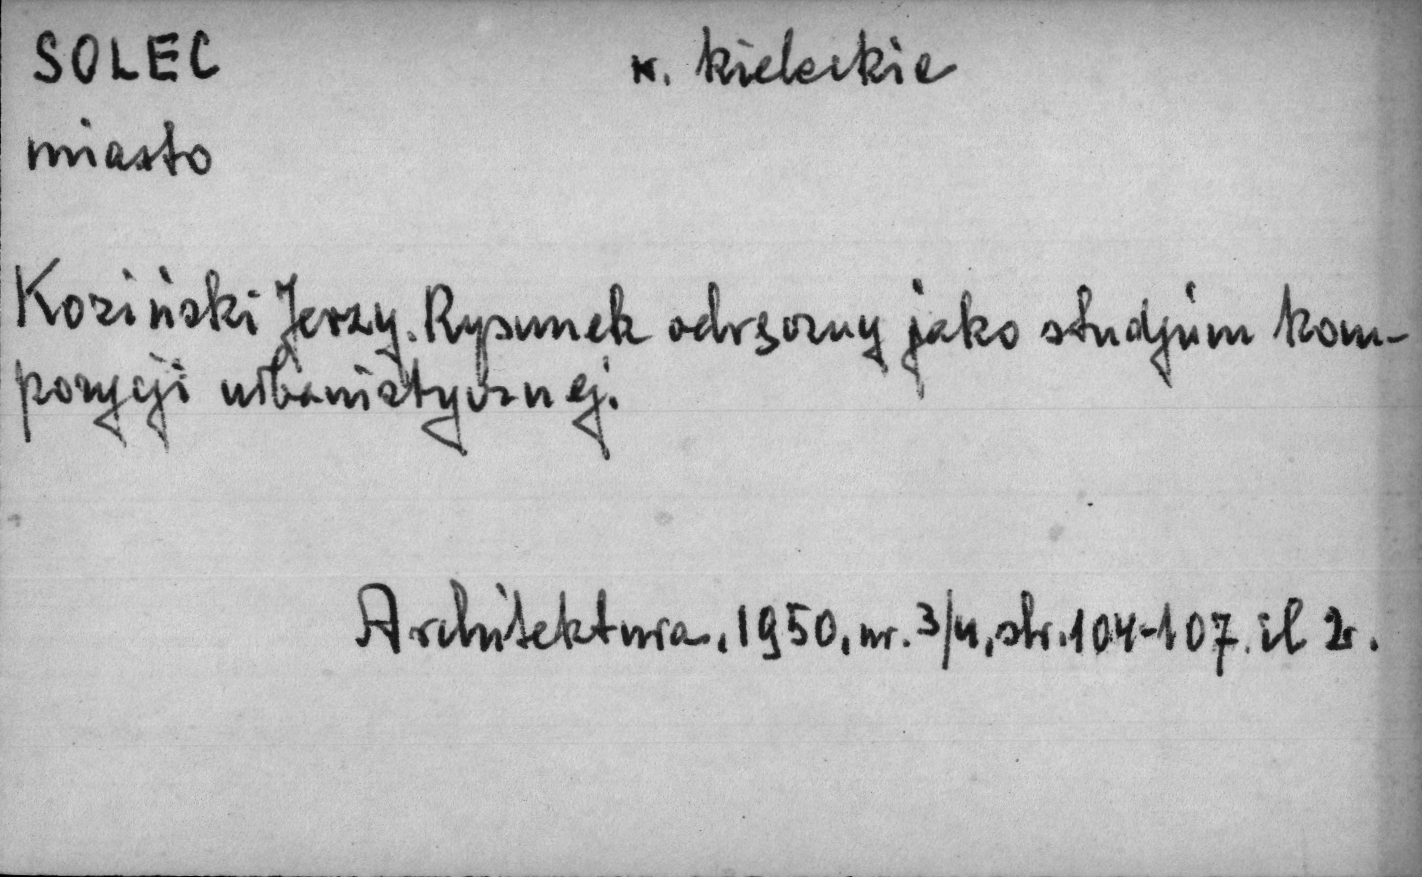 SOLEC w. kieleckie
miasto
Koziński Jerzy. Rysunek odręczny jako studjum kom-
pozycji urbanistycznej.
Architektura, 1950, nr. 3/4, str. 104-107. il 2r.